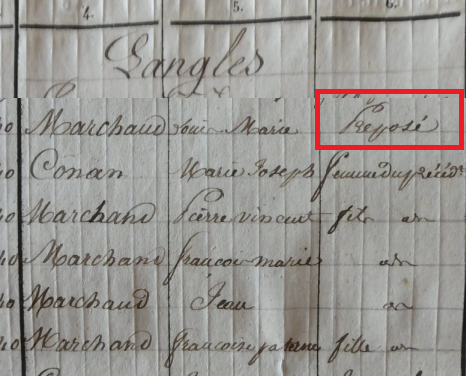 4. 5. 6.
Langles
40 Marchand Louis Marie Préposé
40 Conan Marie Joseph femme du précédt
40 Marchand Pierre vincent fils an
40 Marchand francois marie an
40 Marchand Jean an
40 Marchand francoise fille an